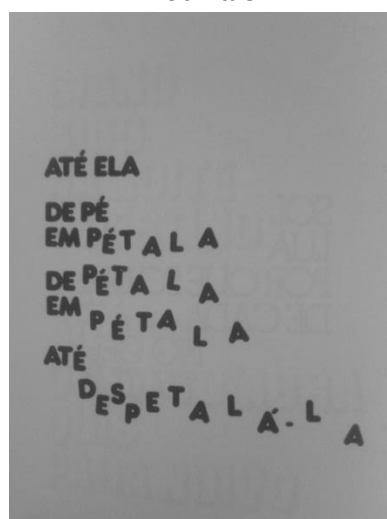 ATÉ ELA
DE PÉ
EM PÉTALA
DE PÉTALA
EM PÉTALA
ATÉ
DESPETALÁ-LA